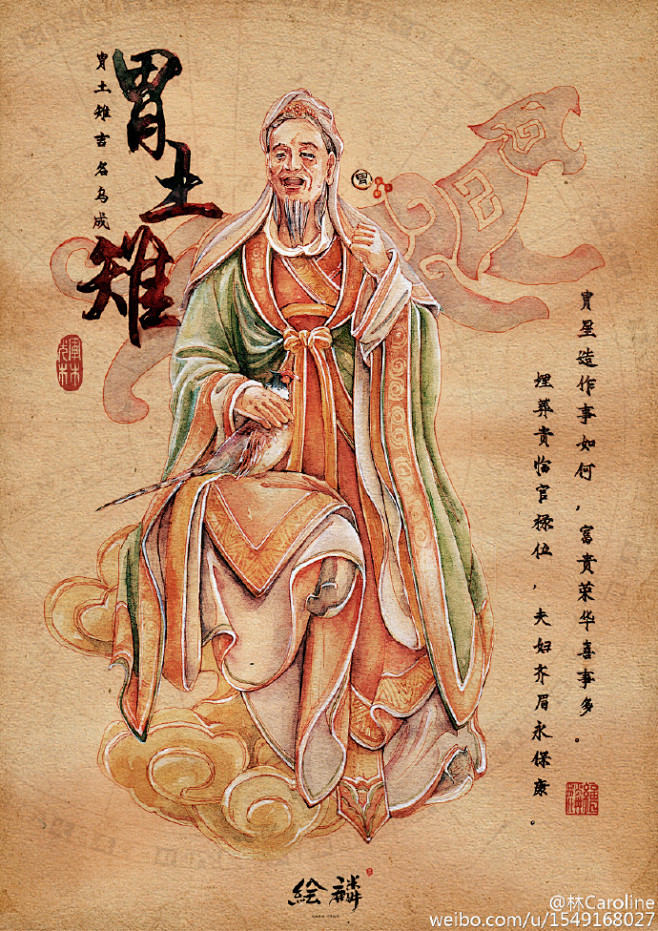 胃土雉
胃土雉吉名乌成
胃
胃星造作事如何，富贵荣华喜事多。
埋葬贵临官禄位，夫妇齐眉永保康。
绘麟
@林Caroline
weibo.com/u/1549168027